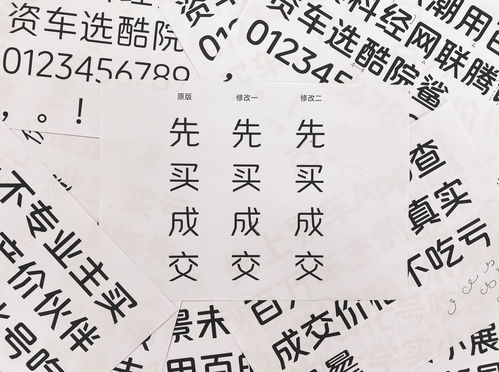 资车选酷院
0123456789
，。！
科经网联腾
资车选酷院鲨
012345
原版 修改一 修改二
先 先 先
买 买 买
成 成 成
交 交 交
查
真实
不吃亏
不专业主买
产价伙伴
号吃
景未
用百
成交价
小展